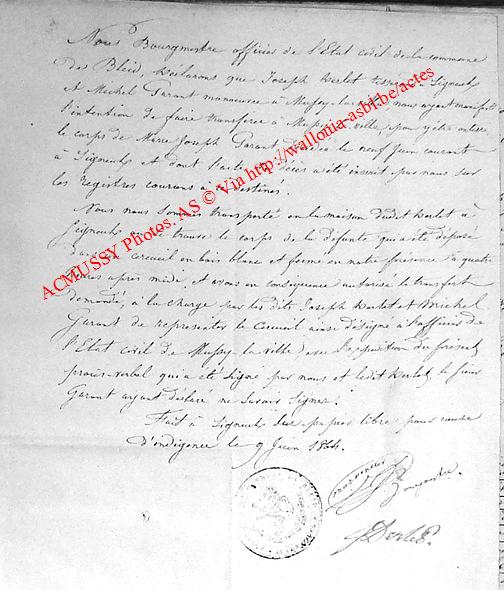 Nous Bourgmestre officier de l'Etat civil de la commune
de Bleid, déclarons que Joseph Herlet à Signeulx
et Michel Garant manoeuvre à Mussy-la-ville, nous ayant manifesté
l'intention de faire transférer à Mussy-la-ville, pour y être enterré
le corps de Marie Joseph Garant décédée le neuf juin courant
à Signeulx et dont l'acte de décès a été inscrit par nous sur
les registres courans à ce destinés.
Nous nous sommes transporté en la maison dudit Herlet à
Signeulx trouvé le corps de la défunte qui a été déposé
dans cercueil en bois blanc et fermé en notre présence à quatre
heures après midi, et avons en conséquence autorisé le transfert
demandé, à la charge par les dits Joseph Herlet et Michel
Garant de représenter le cercueil ainsi désigné à l'officier de
l'Etat civil de Mussy-la-ville avec l'expédition du présent
procès-verbal qui a été signé par nous et ledit Herlet, le sieur
Garant ayant déclaré ne savoir signer.
Fait à Signeulx sur papier libre pour cause
d'indigence le 9 juin 1864.
Bourgmestre.
ACMUSSY Photos. AS © Via http://wallonia-asbl.be/actes